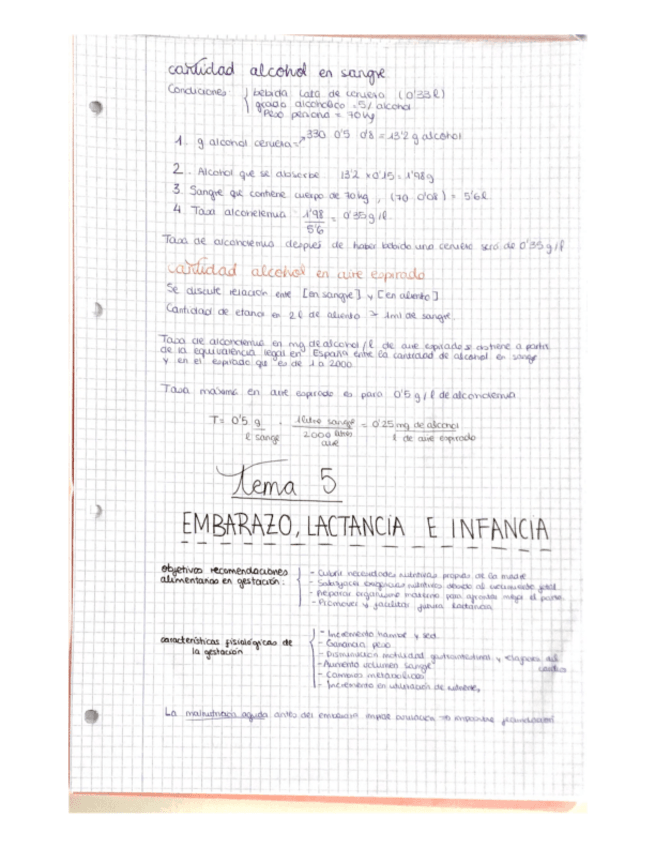 cantidad alcohol en sangre
Condiciones { bebida lata de cerveza (0'33 l)
grado alcoholico = 5% alcohol
Peso persona = 70 kg
1. g alcohol cerveza = 330 0'5 0'8 = 13'2 g alcohol
2. Alcohol que se absorbe 13'2 x 0'15 = 1'98 g
3. Sangre que contiene cuerpo de 70 kg, (70 0'08) = 5'6 l
4. Tasa alcoholemia : 1'98 / 5'6 = 0'35 g/l
Tasa de alcoholemia después de haber bebido una cerveza será de 0'35 g/l
cantidad alcohol en aire espirado
Se discute relación entre [en sangre] y [en aliento]
Cantidad de etanol en 2 l de aliento > 1 ml de sangre
Tasa de alcoholemia en mg de alcohol / l de aire espirado se obtiene a partir
de la equivalencia legal en España entre la cantidad de alcohol en sangre
y en el espirado que es de 1 a 2000
Tasa máxima en aire espirado es para 0'5 g/l de alcoholemia
T = 0'5 g / l sangre · 1 litro sangre / 2000 litros aire = 0'25 mg de alcohol / l de aire espirado
Tema 5
EMBARAZO, LACTANCIA E INFANCIA
objetivos recomendaciones
alimentarias en gestación:
- Cubrir necesidades nutritivas propias de la madre
- Satisfacer exigencias nutritivas debido al crecimiento fetal
- Preparar organismo materno para afrontar mejor el parto
- Promover y facilitar futura lactancia
características fisiológicas de
la gestación
- Incremento hambre y sed
- Ganancia peso
- Disminución motilidad gastrointestinal y
- Aumento volumen sangre
- Cambios metabólicos
- Incremento en utilización de nutrientes
La malnutrición aguda antes del embarazo